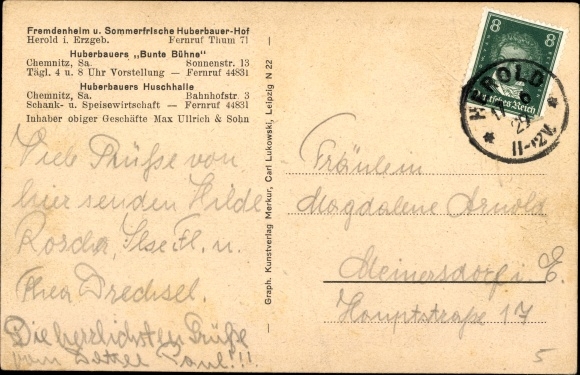 Fremdenheim u. Sommerfrische Huberbauer-Hof
Herold i. Erzgeb. Fernruf Thum 71
Huberbauers „Bunte Bühne“
Chemnitz, Sa. Sonnenstr. 13
Tägl. 4 u. 8 Uhr Vorstellung — Fernruf 44831
Huberbauers Huschhalle
Chemnitz, Sa. Bahnhofstr. 3
Schank- u. Speisewirtschaft — Fernruf 44831
Inhaber obiger Geschäfte Max Ullrich & Sohn
Viele Grüße von
hier senden Hilde
Ilse Fl. u.
Thea Drechsel.
Die herzlichsten Grüße
vom Paul!!!
Graph. Kunstverlag Merkur, Carl Lukowski, Leipzig N 22
8 8
Deutsches Reich
HEROLD
11-12V.
Fräulein
Magdalene Arnold
Meinersdorf i. E.
Hauptstraße 17
5